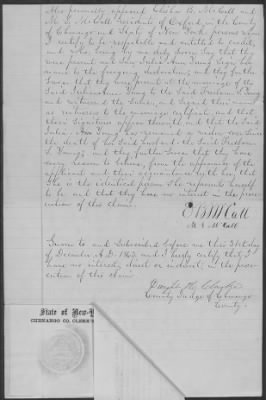 Also personally appeared Charles B. McCall and
M. S. McCall residents of Oxford in the County
of Chenango and State of New York persons whom
I certify to be respectable and entitled to credit
and who being by me duly sworn say that they
were present and saw Julia Ann Young sign her
name to the foregoing declaration, and they further
swear that they were present at the marriage of the
said
and witnessed the same, and signed their names
as witnesses to the marriage certificate, and that
their signatures appear thereto, and that the said
Julia Ann Young has remained a widow ever since
the death of her said husband the said
Young; and they further swear that they have
every reason to believe, from the appearance of the
applicant and their acquaintance with her, that
she is the identical person she represents herself
to be and that they have no interest in the prose-
cution of this claim.
McCall
M. S. McCall
Sworn to and Subscribed before me this 31st day
of December A.D. 1863, and I hereby certify that I
have no interest, direct or indirect, in the prose-
cution of this claim
Dwight H. Clarke
County Judge of Chenango
County.
State of New-
CHENANGO CO. CLERK'S